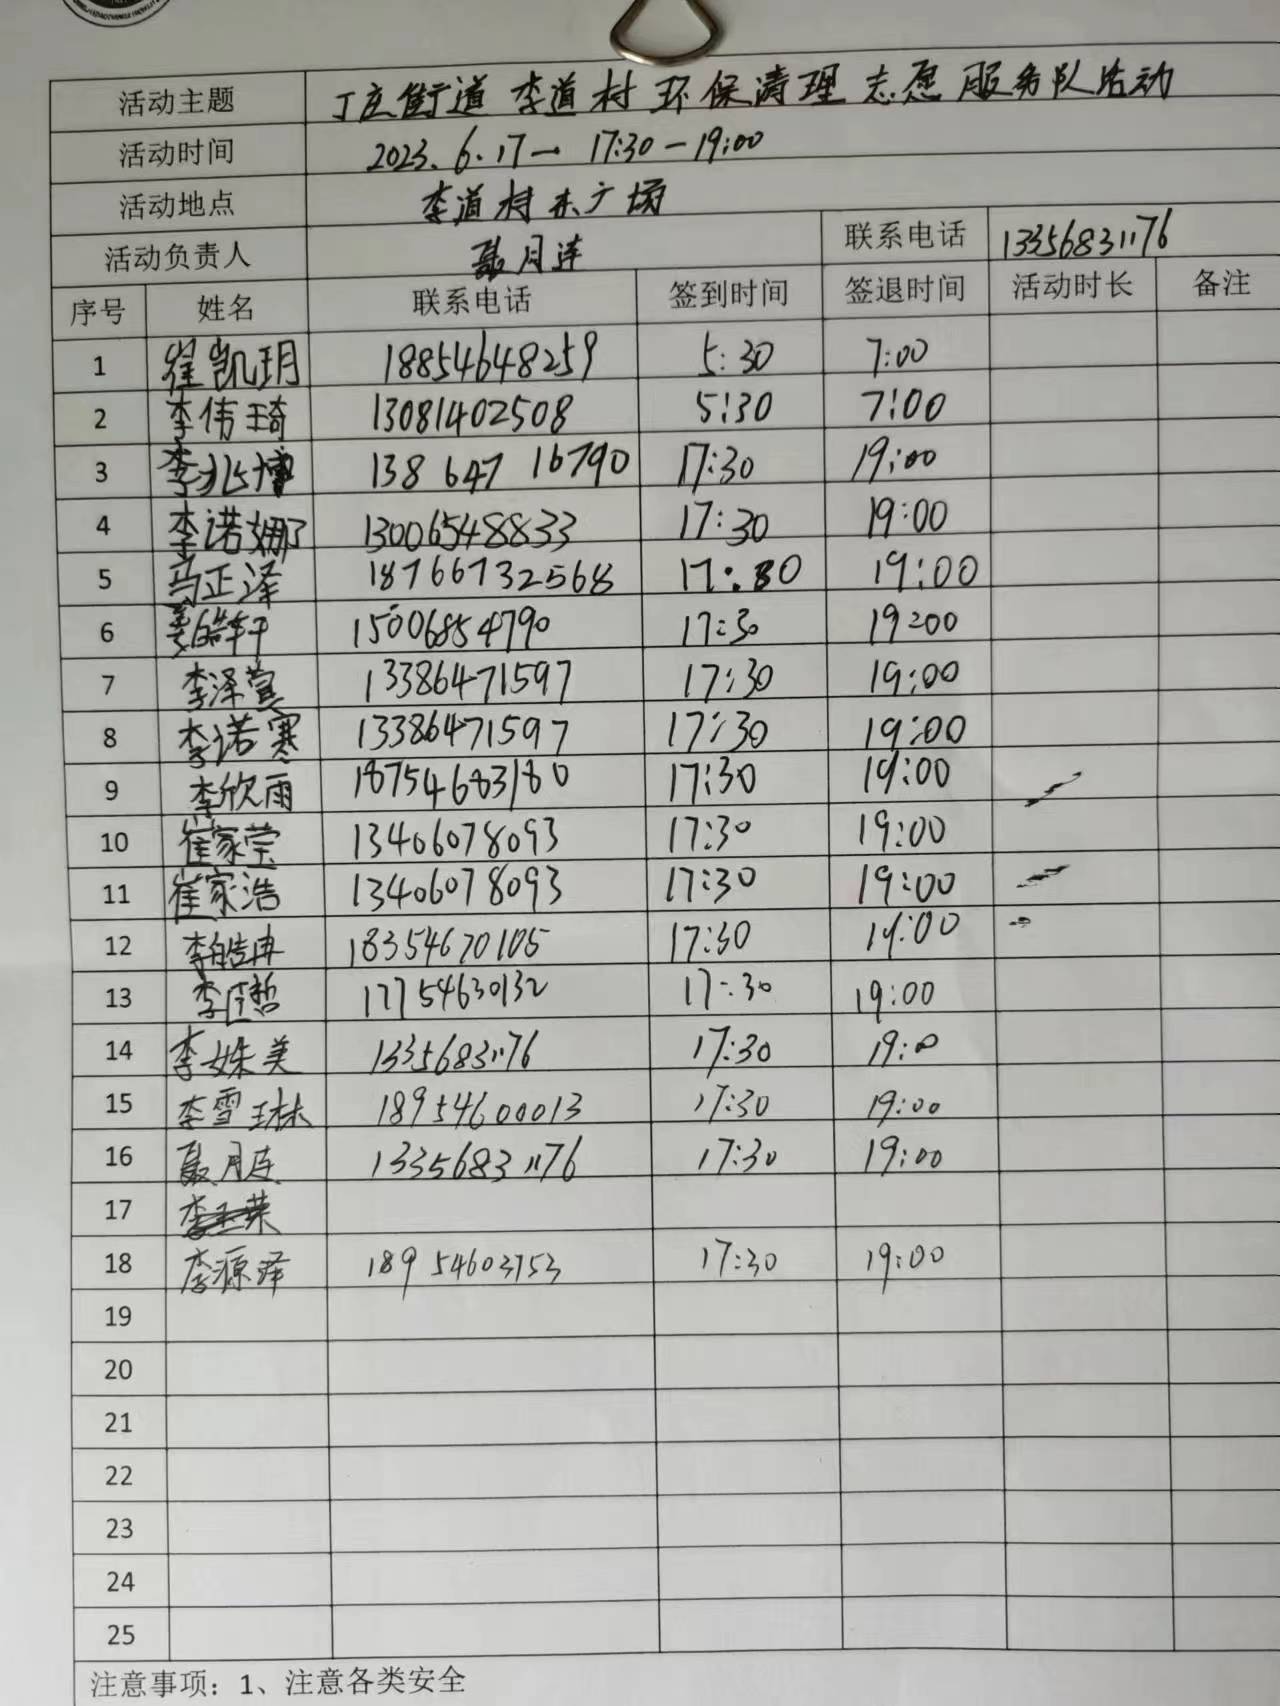 活动主题 丁庄街道 李道村 环保清理 志愿服务队活动
活动时间 2023.6.17— 17:30—19:00
活动地点 李道村东广场
活动负责人 聂月连 联系电话 13356831176
序号 姓名 联系电话 签到时间 签退时间 活动时长 备注
1 崔凯玥 18854648259 5:30 7:00
2 李伟琦 13081402508 5:30 7:00
3 李兆博 138 647 16790 17:30 19:00
4 李诺娜 13006548833 17:30 19:00
5 马正泽 187667732568 17:30 19:00
6 姜皓轩 15006854790 17:30 19:00
7 李泽萱 13386471597 17:30 19:00
8 李诺寒 13386471597 17:30 19:00
9 李欣雨 18754683180 17:30 19:00
10 崔家莹 13406078093 17:30 19:00
11 崔家浩 13406078093 17:30 19:00
12 李皓冉 18354670105 17:30 19:00
13 李臣哲 17754630132 17:30 19:00
14 李姝美 13356831176 17:30 19:00
15 李雪琳 18954600013 17:30 19:00
16 聂月连 13356831176 17:30 19:00
17
18 李源泽 18954603753 17:30 19:00
19
20
21
22
23
24
25
注意事项：1、注意各类安全